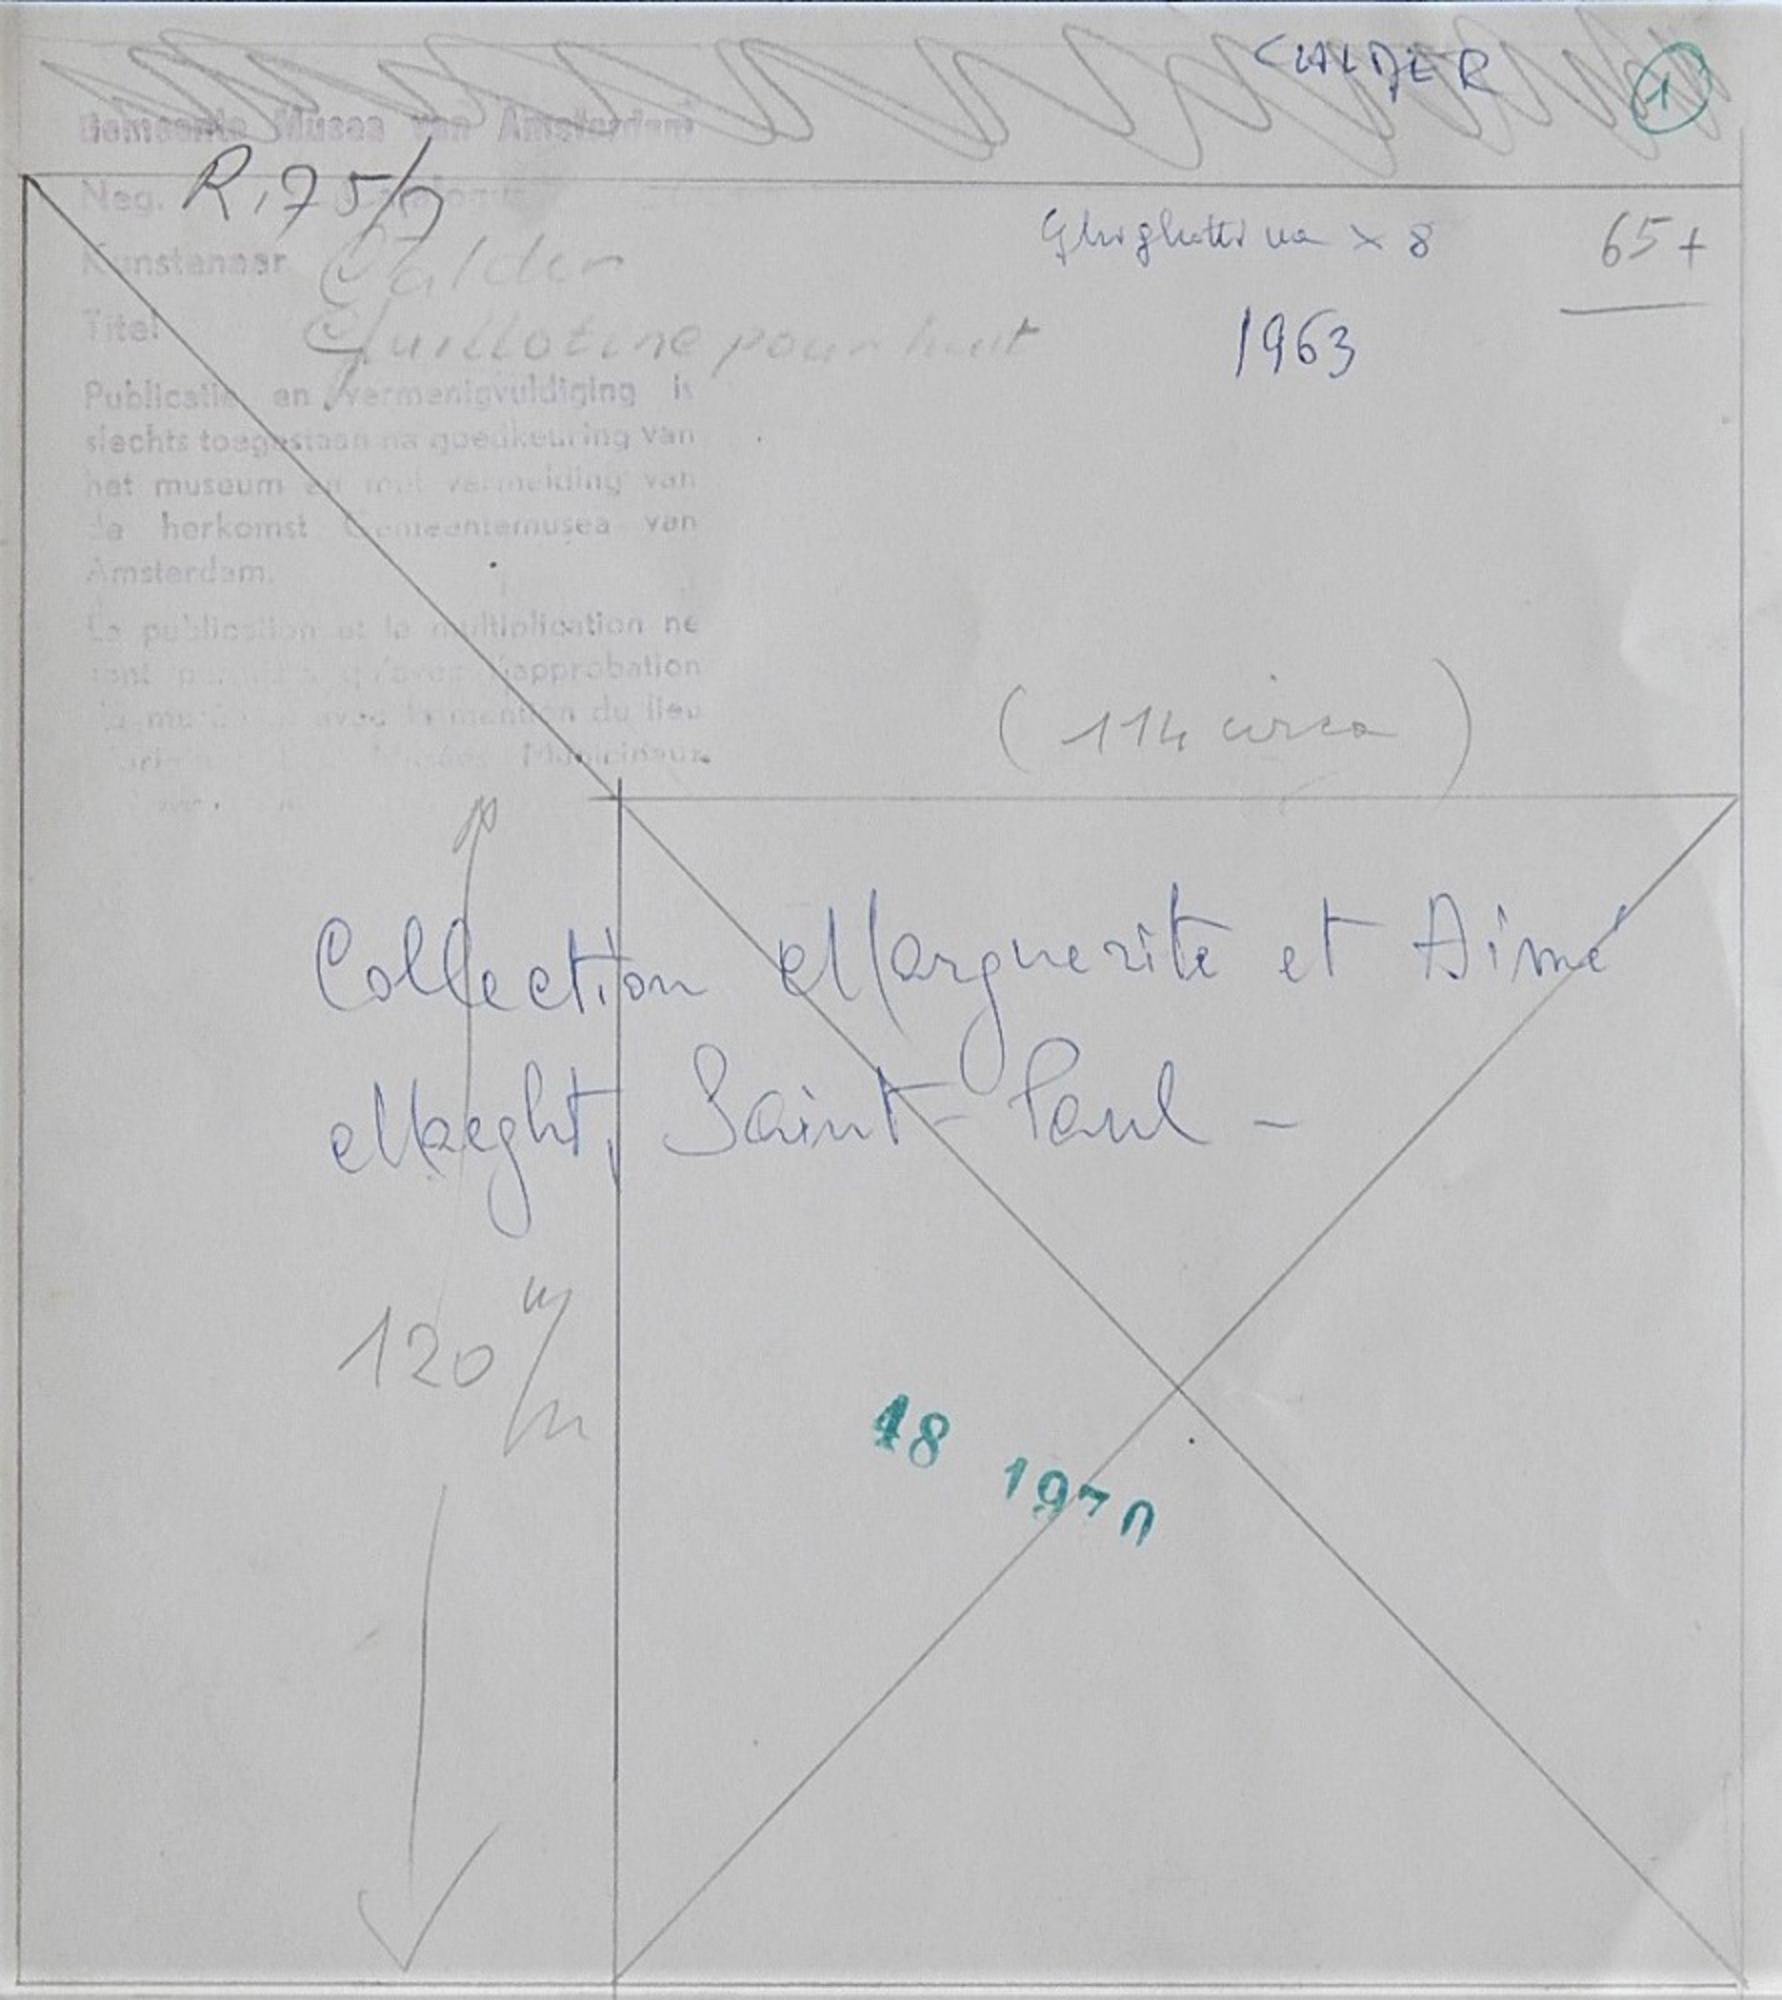 CALDER 1
Gemeente Musea van Amsterdam
Neg. R.75/7
Ghighottina x 8 65+
Kunstenaar Calder
1963
Titel Guillotine pour huit
Publicatie en vermenigvuldiging is
slechts toegestaan na goedkeuring van
het museum en met vermelding van
de herkomst Gemeentemusea van
Amsterdam.
La publication et la multiplication ne
sont l'approbation
du avec la mention du lieu
Musées Municipaux
(114 circa)
Collection Marguerite et Aimé
Maeght, Saint-Paul -
120 m/m
48 1970